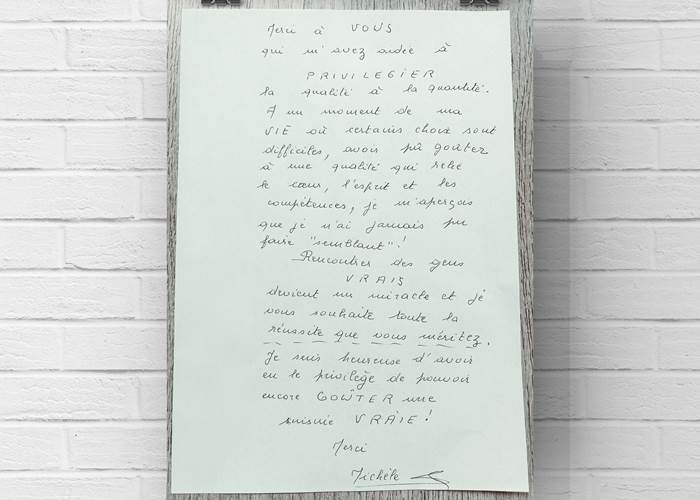 Merci à VOUS
qui m'avez aidée à
PRIVILEGIER
la qualité à la quantité.
A un moment de ma
VIE où certains choix sont
difficiles, avoir pû goûtez
à une qualité qui relie
le cœur, l'esprit et les
compétences, je m'aperçois
que je n'ai jamais pu
faire "semblant"!
Rencontrer des gens
VRAIS
devient un miracle et je
vous souhaite toute la
réussite que vous méritez.
Je suis heureuse d'avoir
eu le privilège de pouvoir
encore GOÛTER une
cuisine VRAIE!
Merci
Michèle